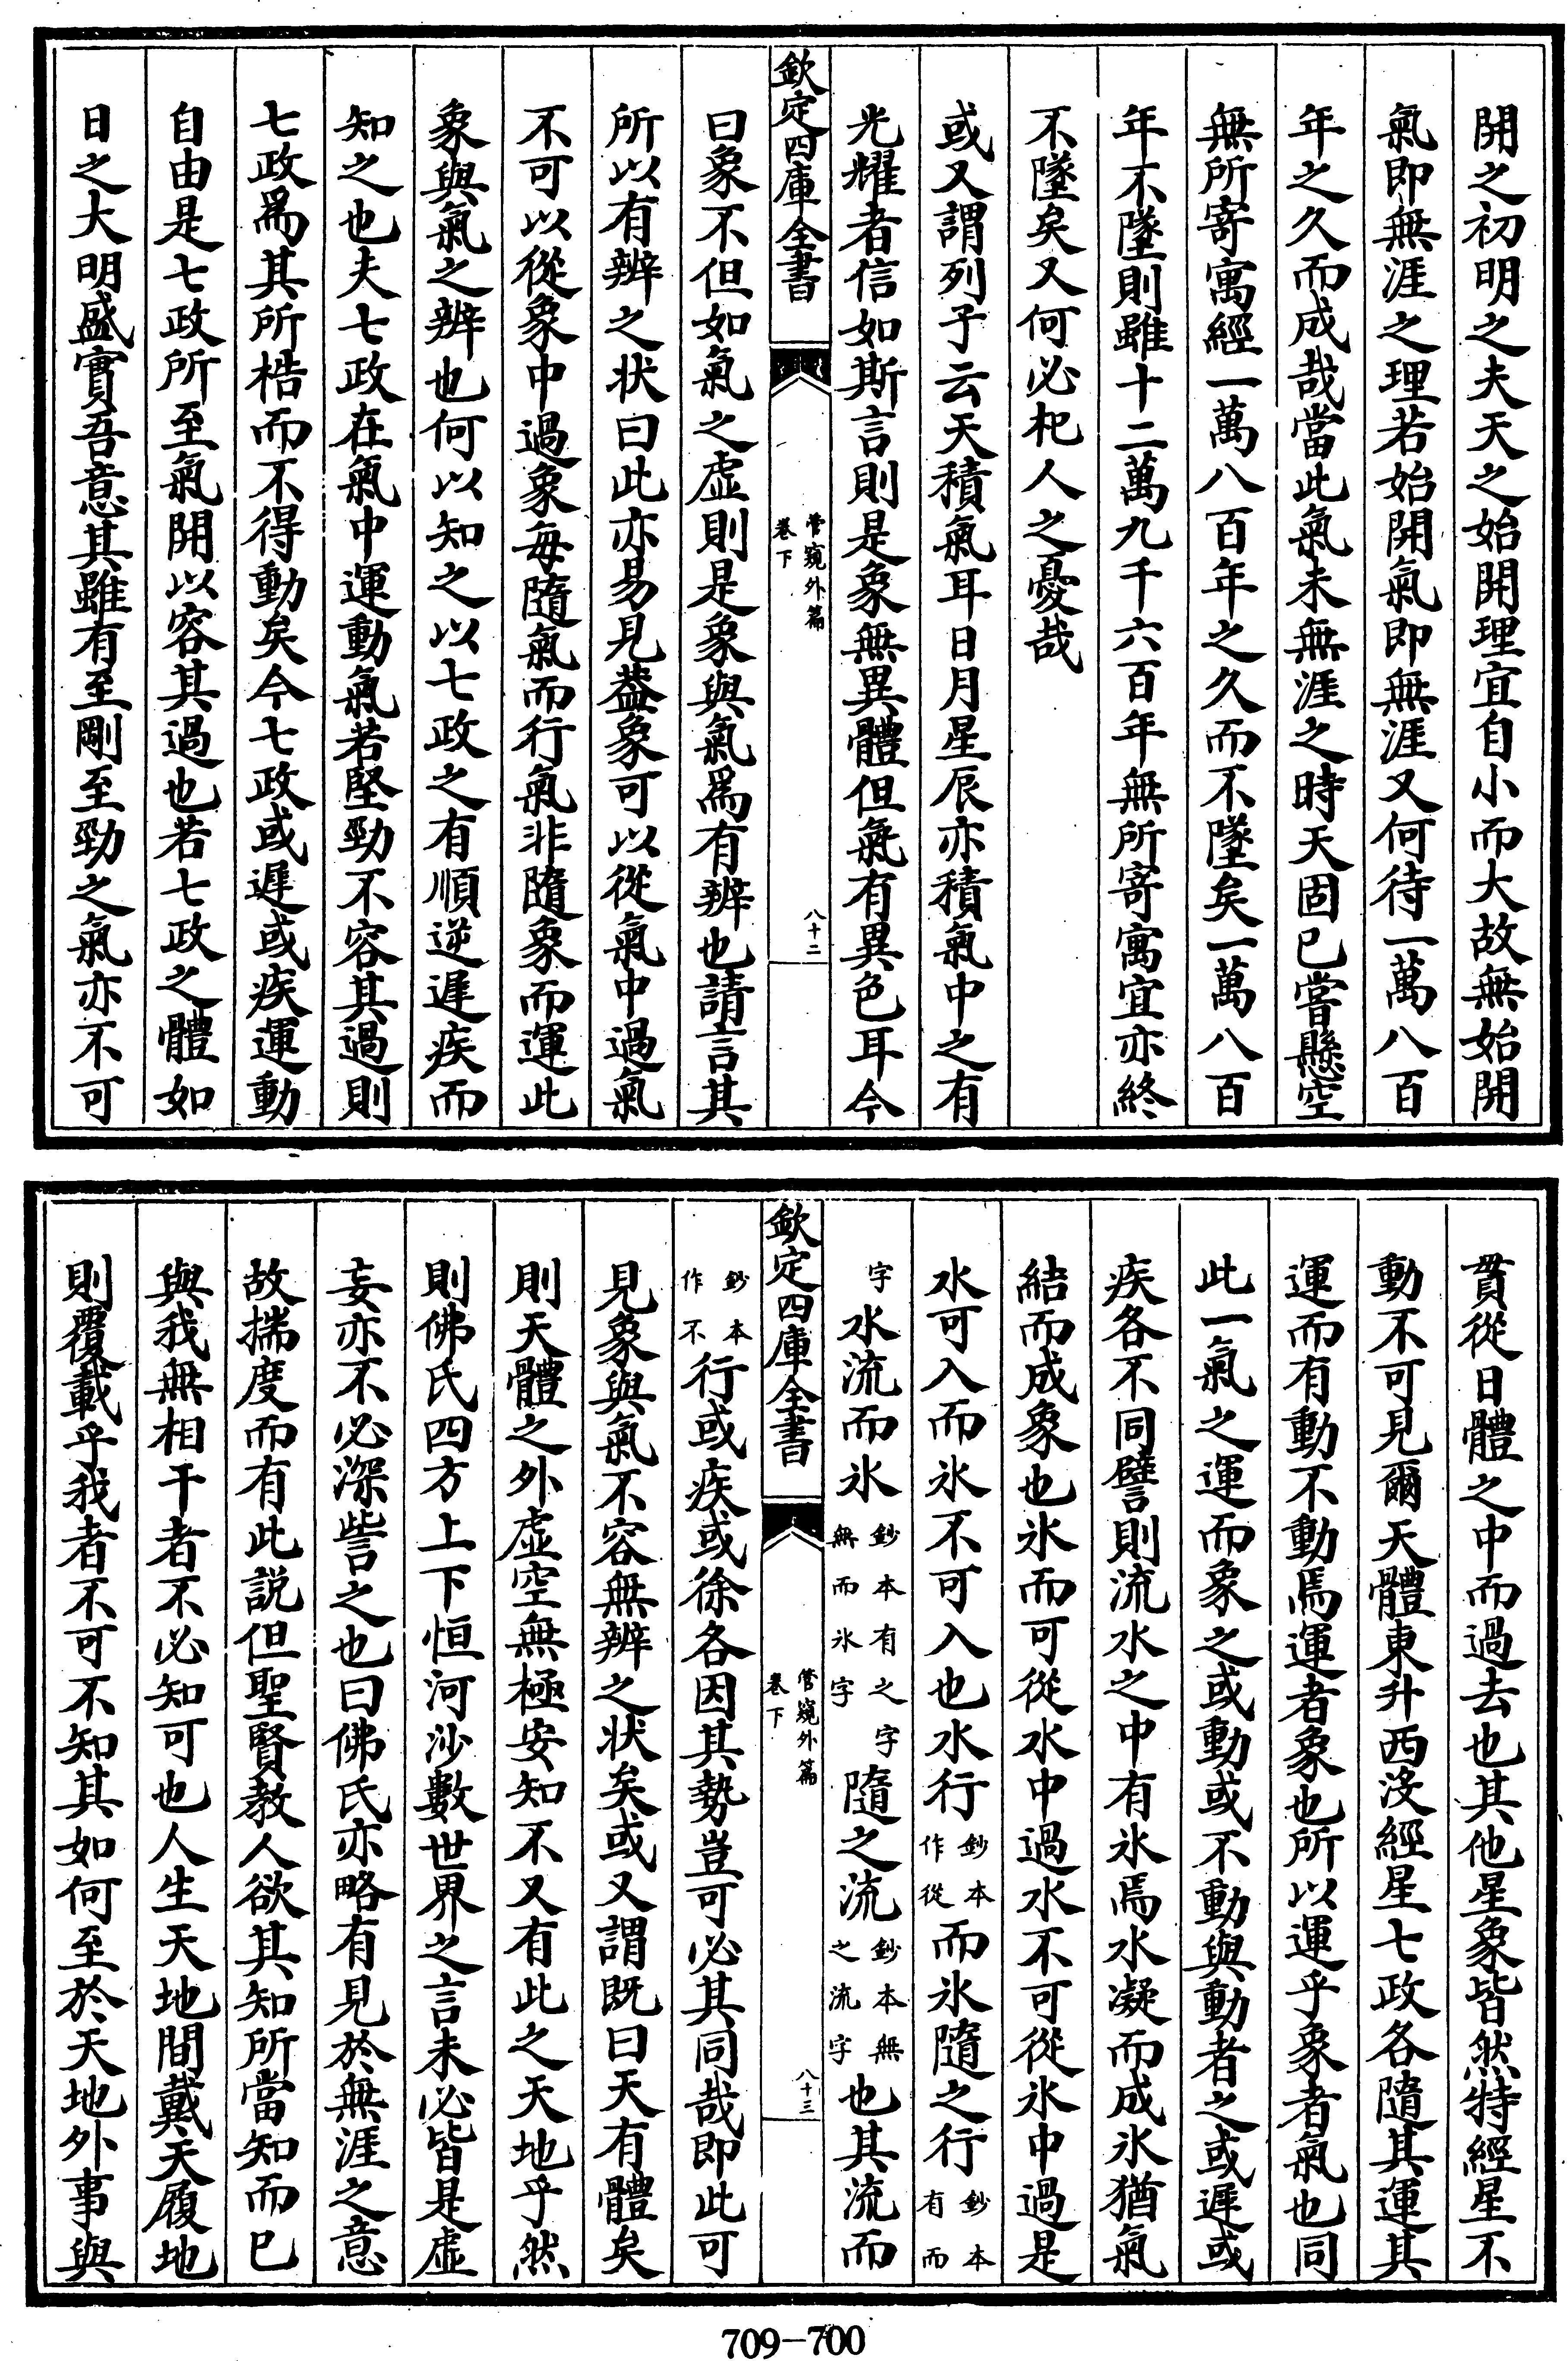 開之初明之夫天之始開理宜自小而大故無始開
氣即無涯之理若始開氣即無涯又何待一萬八百
年之久而成哉當此氣未無涯之時天固已嘗懸空
無所寄寓經一萬八百年之久而不墜矣一萬八百
年不墜則雖十二萬九千六百年無所寄寓宜亦終
不墜矣又何必杞人之憂哉
或又謂列子云天積氣耳日月星辰亦積氣中之有
光耀者信如斯言則是象無異體但氣有異色耳今
欽定四庫全書
管窺外篇
卷下
八十二
曰象不但如氣之虛則是象與氣爲有辨也請言其
所以有辨之状曰此亦易見葢象可以從氣中過氣
不可以從象中過象每隨氣而行氣非隨象而運此
象與氣之辨也何以知之以七政之有順逆遲疾而
知之也夫七政在氣中運動氣若堅勁不容其過則
七政爲其所梏而不得動矣今七政或遲或疾運動
自由是七政所至氣開以容其過也若七政之體如
日之大明盛實吾意其雖有至剛至勁之氣亦不可
貫從日體之中而過去也其他星象皆然特經星不
動不可見爾天體東升西沒經星七政各隨其運其
運而有動不動焉運者象也所以運乎象者氣也同
此一氣之運而象之或動或不動與動者之或遲或
疾各不同譬則流水之中有氷焉水凝而成氷猶氣
結而成象也氷而可從水中過水不可從氷中過是
水可入而氷不可入也水行鈔本作從而氷隨之行鈔本有而
字水流而氷鈔本有之字無而氷字隨之流鈔本無之流字也其流而
欽定四庫全書
管窺外篇
卷下
八十三
鈔本作不行或疾或徐各因其勢豈可必其同哉即此可
見象與氣不容無辨之状矣或又謂既曰天有體矣
則天體之外虛空無極安知不又有此之天地乎然
則佛氏四方上下恒河沙數世界之言未必皆是虛
妄亦不必深訾之也曰佛氏亦略有見於無涯之意
故揣度而有此説但聖賢教人欲其知所當知而已
與我無相干者不必知可也人生天地間戴天履地
則覆載乎我者不可不知其如何至於天地外事與
709-700